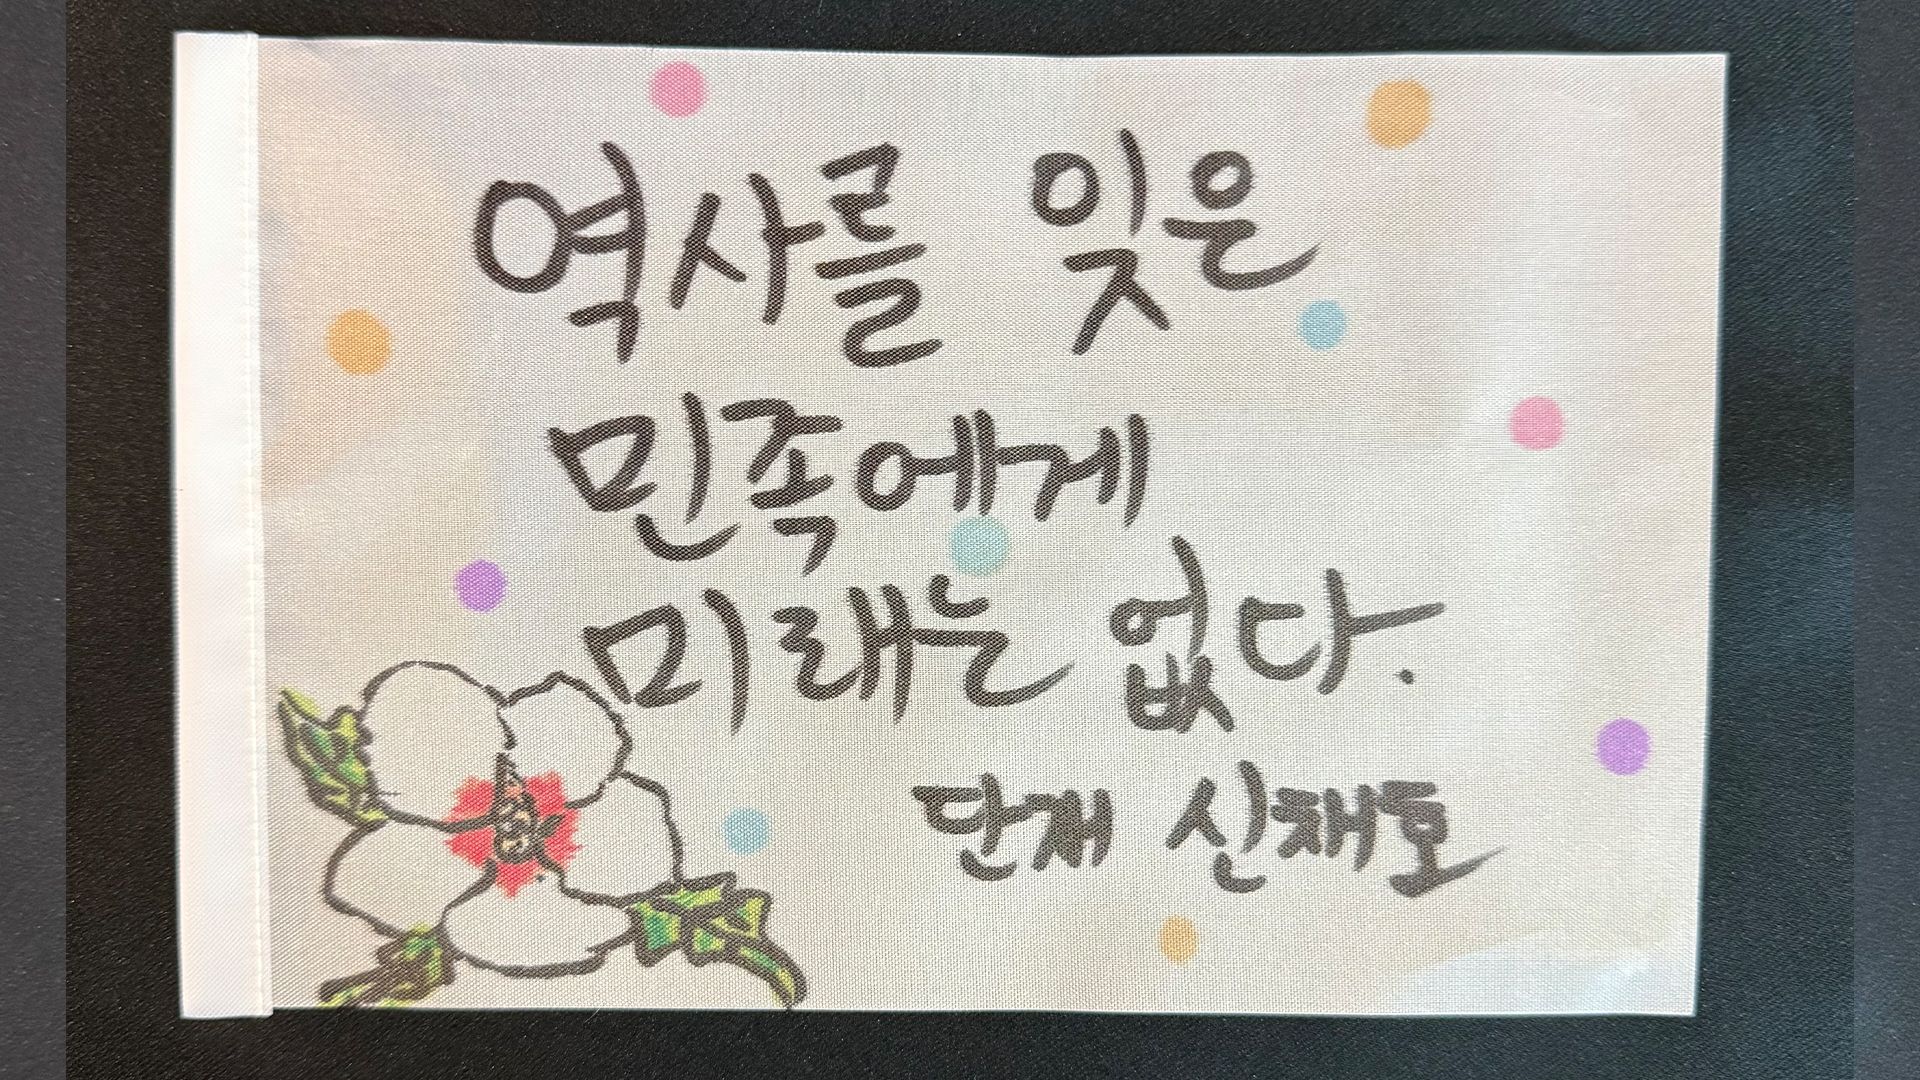 역사를 잊은
민족에게
미래는 없다.
단재 신채호